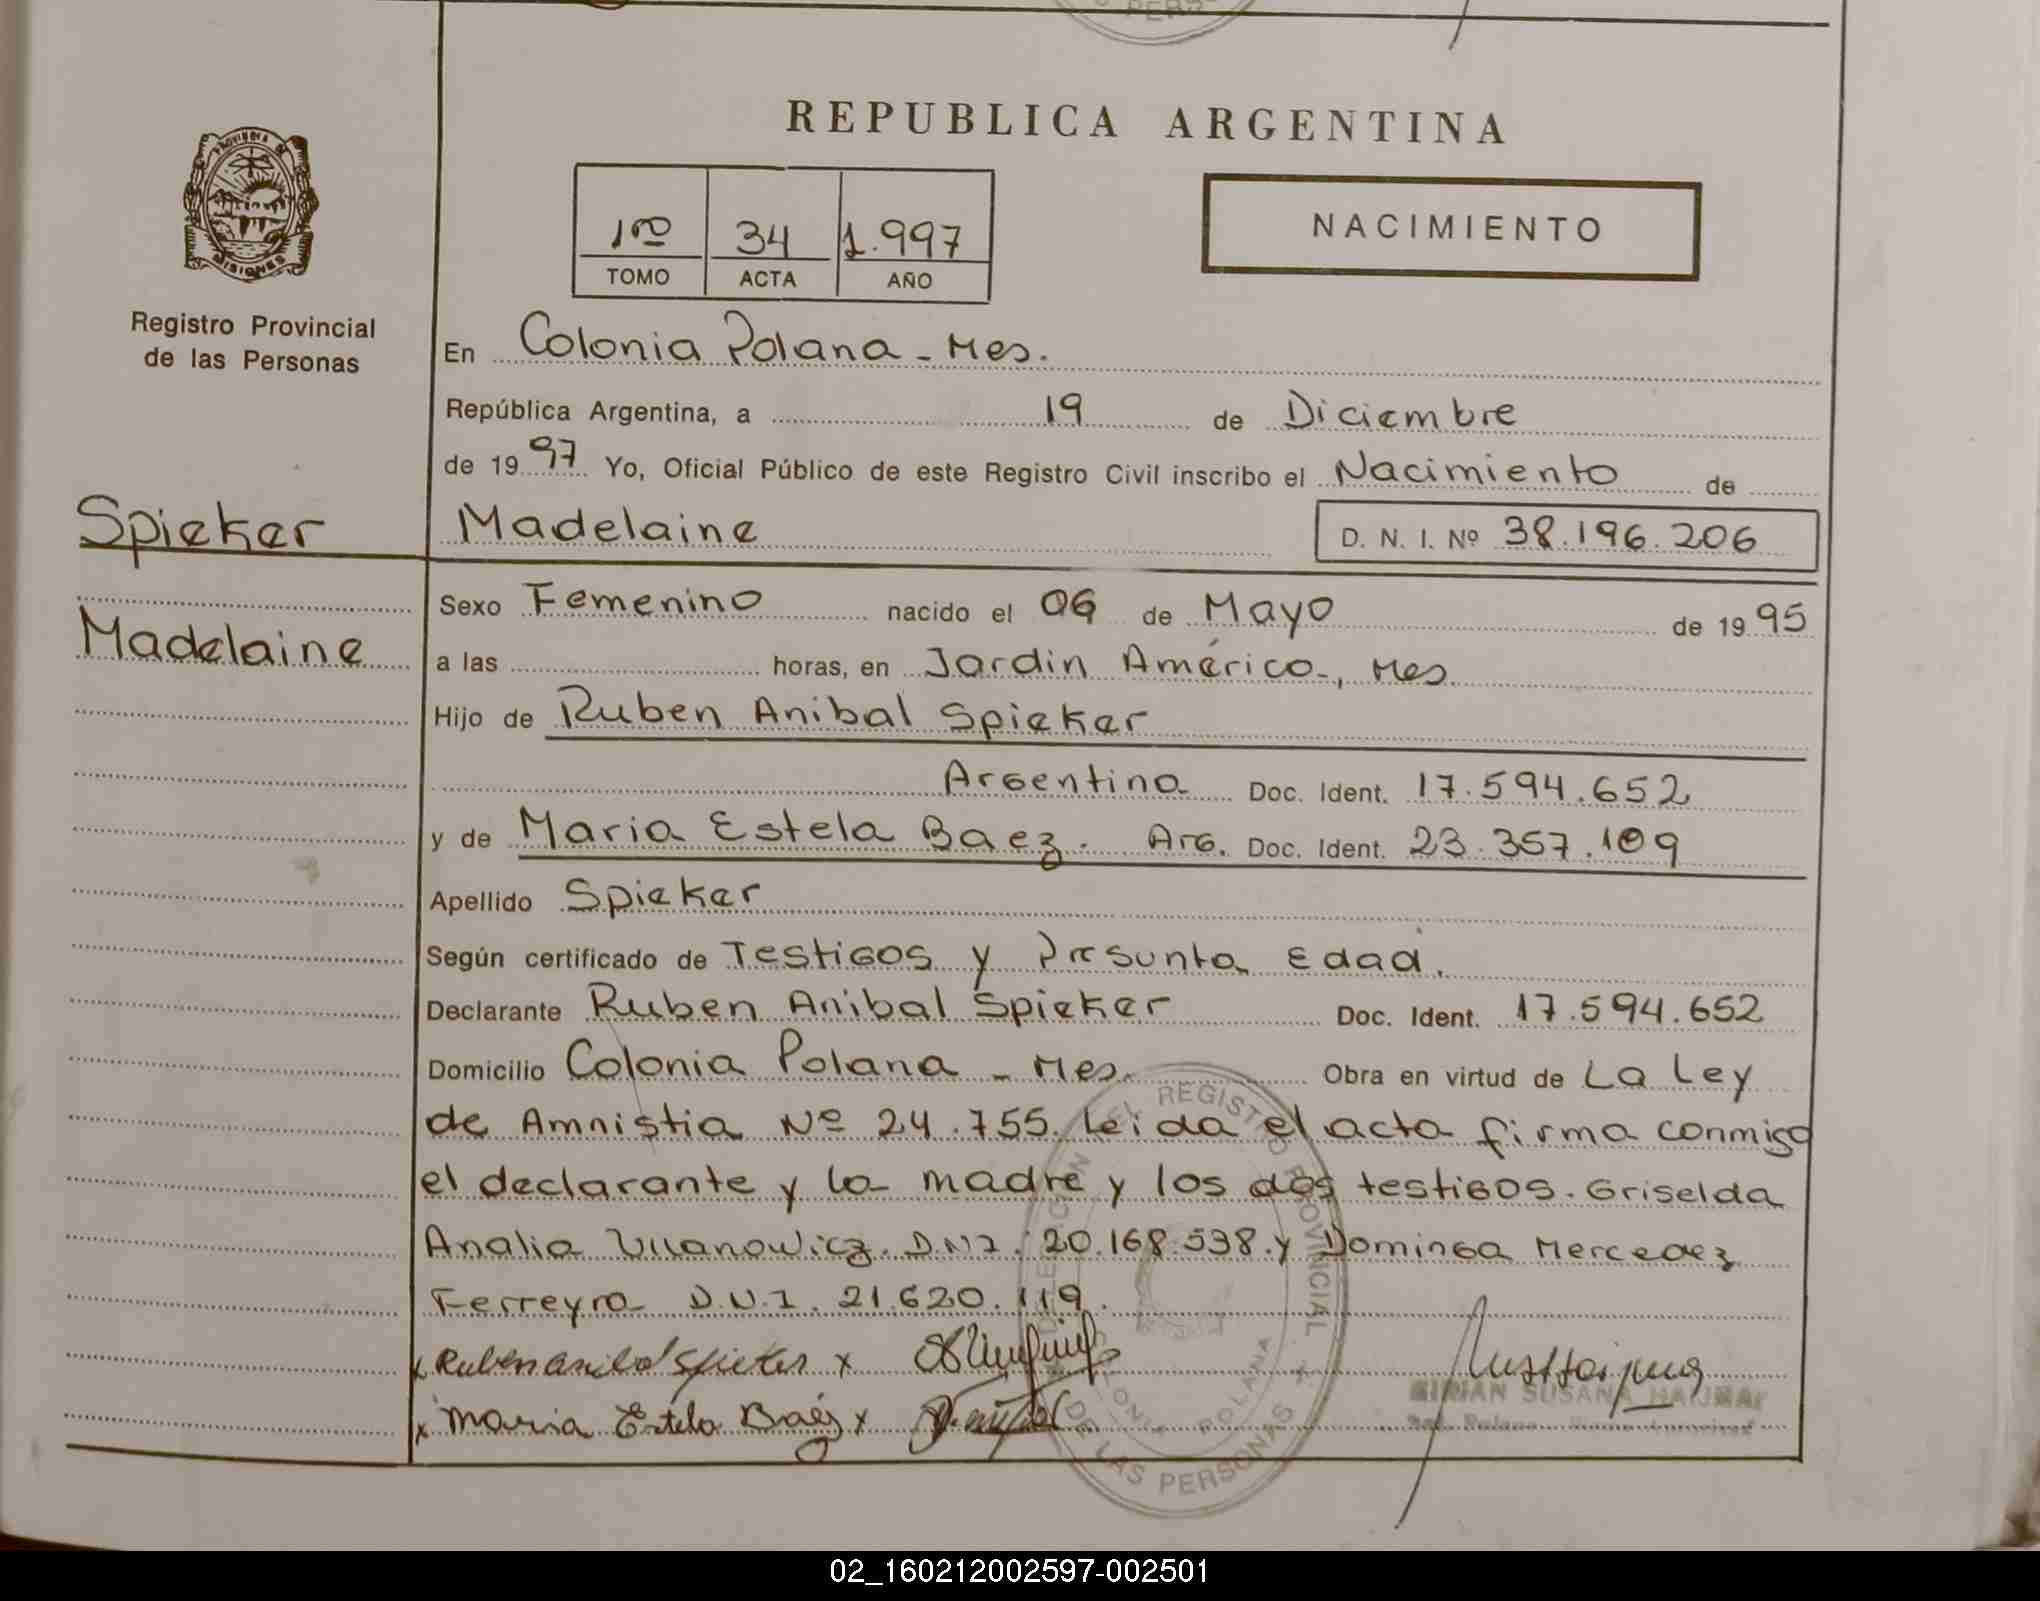 REPUBLICA ARGENTINA
PROVINCIA DE
MISIONES
Registro Provincial
de las Personas
1ro 34 1.997
TOMO ACTA AÑO
NACIMIENTO
En Colonia Polana - Mes.
República Argentina, a 19 de Diciembre
de 1997 Yo, Oficial Público de este Registro Civil inscribo el Nacimiento de
Spieker
Madelaine D. N. I. Nº 38.196.206
Sexo Femenino nacido el 06 de Mayo de 1995
Madelaine
a las horas, en Jardin América, Mes.
Hijo de Ruben Anibal Spieker
Argentina Doc. Ident. 17.594.652
y de Maria Estela Baez. Arg. Doc. Ident. 23.357.109
Apellido Spieker
Según certificado de Testigos y Presunta Edad.
Declarante Ruben Anibal Spieker Doc. Ident. 17.594.652
Domicilio Colonia Polana - Mes. Obra en virtud de La Ley
de Amnistia Nº 24.755. Leida el acta firma conmigo
el declarante y la madre y los dos testigos. Griselda
Analia D.N.I. 20.168.538. y Dominga Mercedez
Ferreyra D.N.I. 21.620.119.
x Ruben anibal Spieker x
x Maria Estela Baéz x
DELEGACION DEL REGISTRO PROVINCIAL DE LAS PERSONAS
COLONIA POLANA
MIRIAN SUSANA
02_160212002597-002501